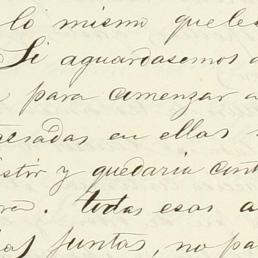 lo mismo que les
Si aguardasemos a
para comenzar a
esadas en ellas
istir y quedaria cont
todas esas a
las juntas, no pa